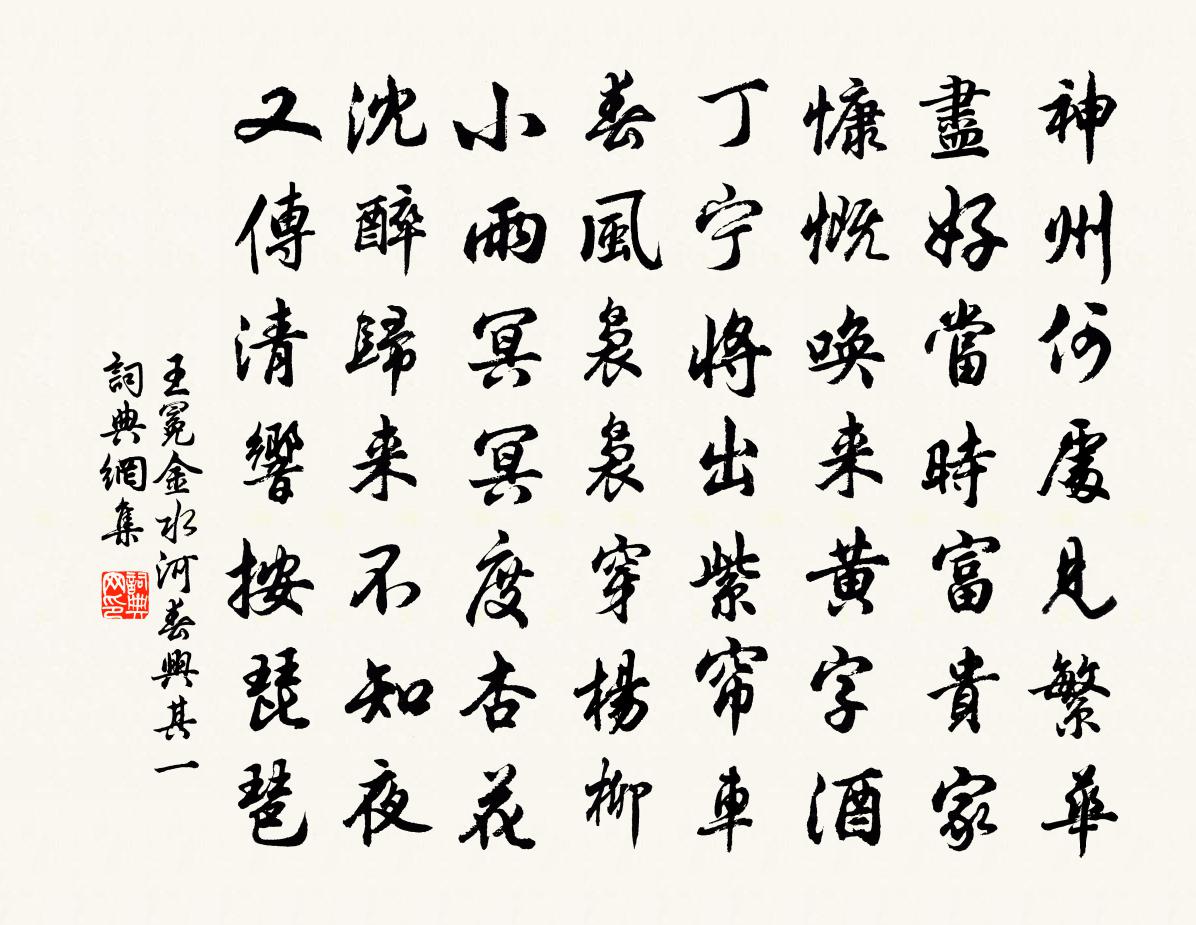 神州何處見繁華
盡好當時富貴家
慷慨喚来黃字酒
丁宁將出紫帘車
春風裊裊穿楊柳
小雨冥冥度杏花
沈醉歸来不知夜
又傳清響按琵琶
王冕金水河春興其一
詞典網集
詞典网印